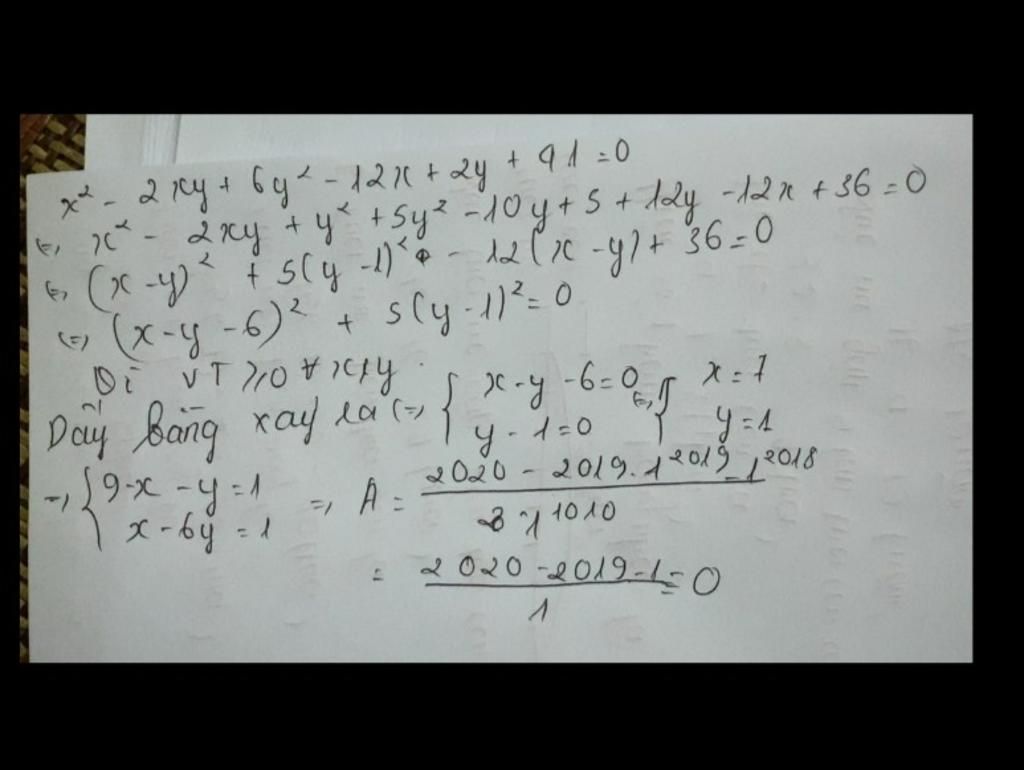 x² - 2xy + 6y² - 12x + 2y + 41 = 0
(=) x² - 2xy + y² + 5y² - 10y + 5 + 12y - 12x + 36 = 0
(=) (x - y)² + 5(y - 1)² - 12(x - y) + 36 = 0
(=) (x - y - 6)² + 5(y - 1)² = 0
Vì VT ≥ 0 ∀ x, y
Dấu bằng xảy ra (=) { x - y - 6 = 0 (=) { x = 7
y - 1 = 0 y = 1
=) { 9 - x - y = 1 =) A = 2020 - 2019. 1^2019 - 1^2018
x - 6y = 1 1^1010
= 2020 - 2019 - 1 = 0
1